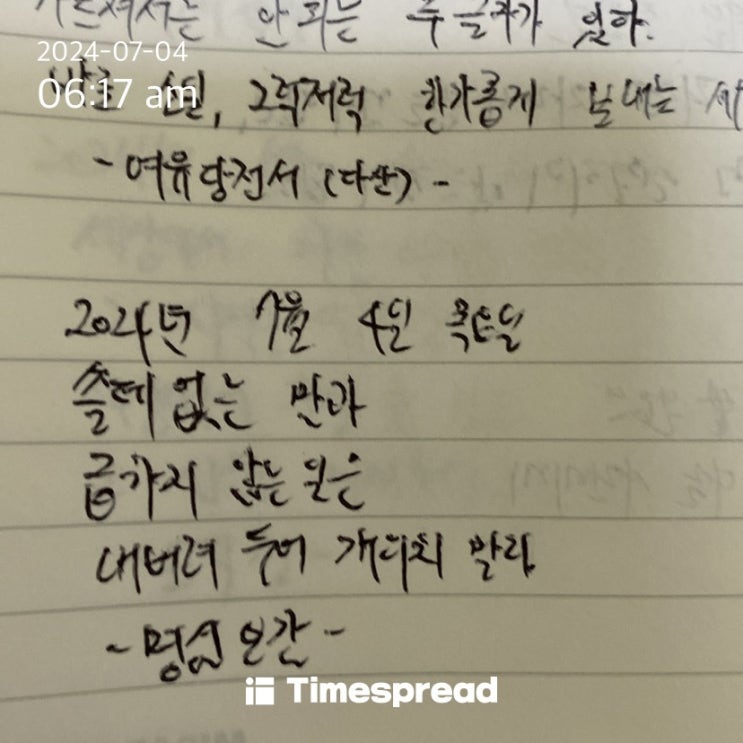 안 되는 두 글자가 있다.
2024-07-04
06:17 am
그럭저럭 한가롭게 보내는
- 여유당전서 (다산) -
2024년 7월 4일 목요일
쓸데 없는 말과
급하지 않은 일은
내버려 두어 개의치 말라
- 명심보감 -
Timespread